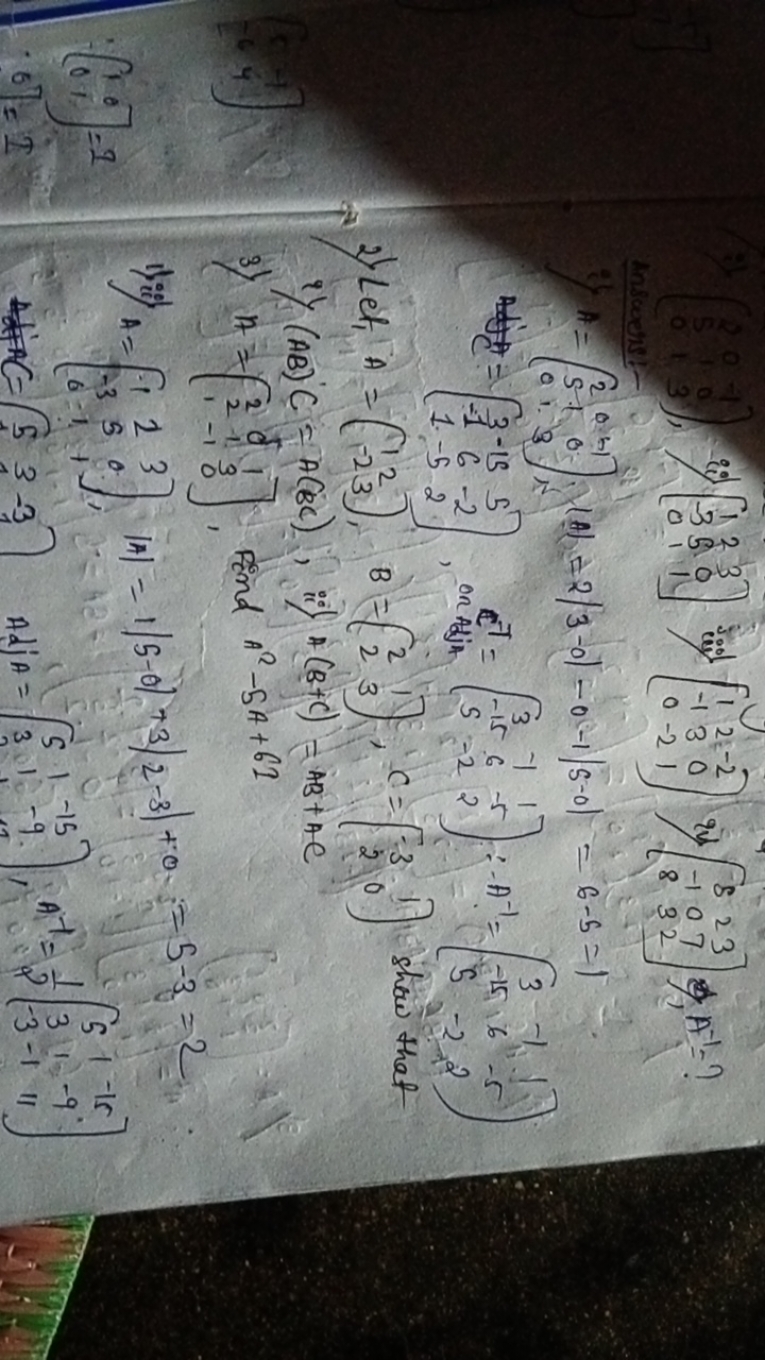 i) [2 0 -1
5 1 0
0 1 3], ii) [1 2 3
-3 5 0
0 1 1] iii) [1 2 -2
-1 3 0
0 -2 1] iv) [8 2 3
-1 0 7
8 3 2], A⁻¹=?
Answers:-
i) A = [2 0 -1
5 1 0
0 1 3], |A| = 2|3-0| - 0 - 1|5-0| = 6-5 = 1
C = [3 -15 5
-1 6 -2
1 -5 2], or AdjA = [3 -1 1
-15 6 -5
5 -2 2] ∴ A⁻¹ = [3 -1 1
-15 6 -5
5 -2 2]
2) Let, A = [1 2
-2 3], B = [2 1
2 3], C = [-3 1
2 0] show that
i) (AB)C = A(BC), ii) A(B+C) = AB+AC
3) A = [2 0 1
2 1 3
1 -1 0], Find A²-5A+6I
1) ii) A = [1 2 3
-3 5 0
0 1 1], |A| = 1|5-0| +3|2-3| +0 = 5-3 = 2
C = [5 3 -3
AdjA = [5 1 -15
3 1 -9
A⁻¹ = 1/2 [5 1 -15
3 1 -9
-3 -1 11]
[1 0
0 1] = I
= I